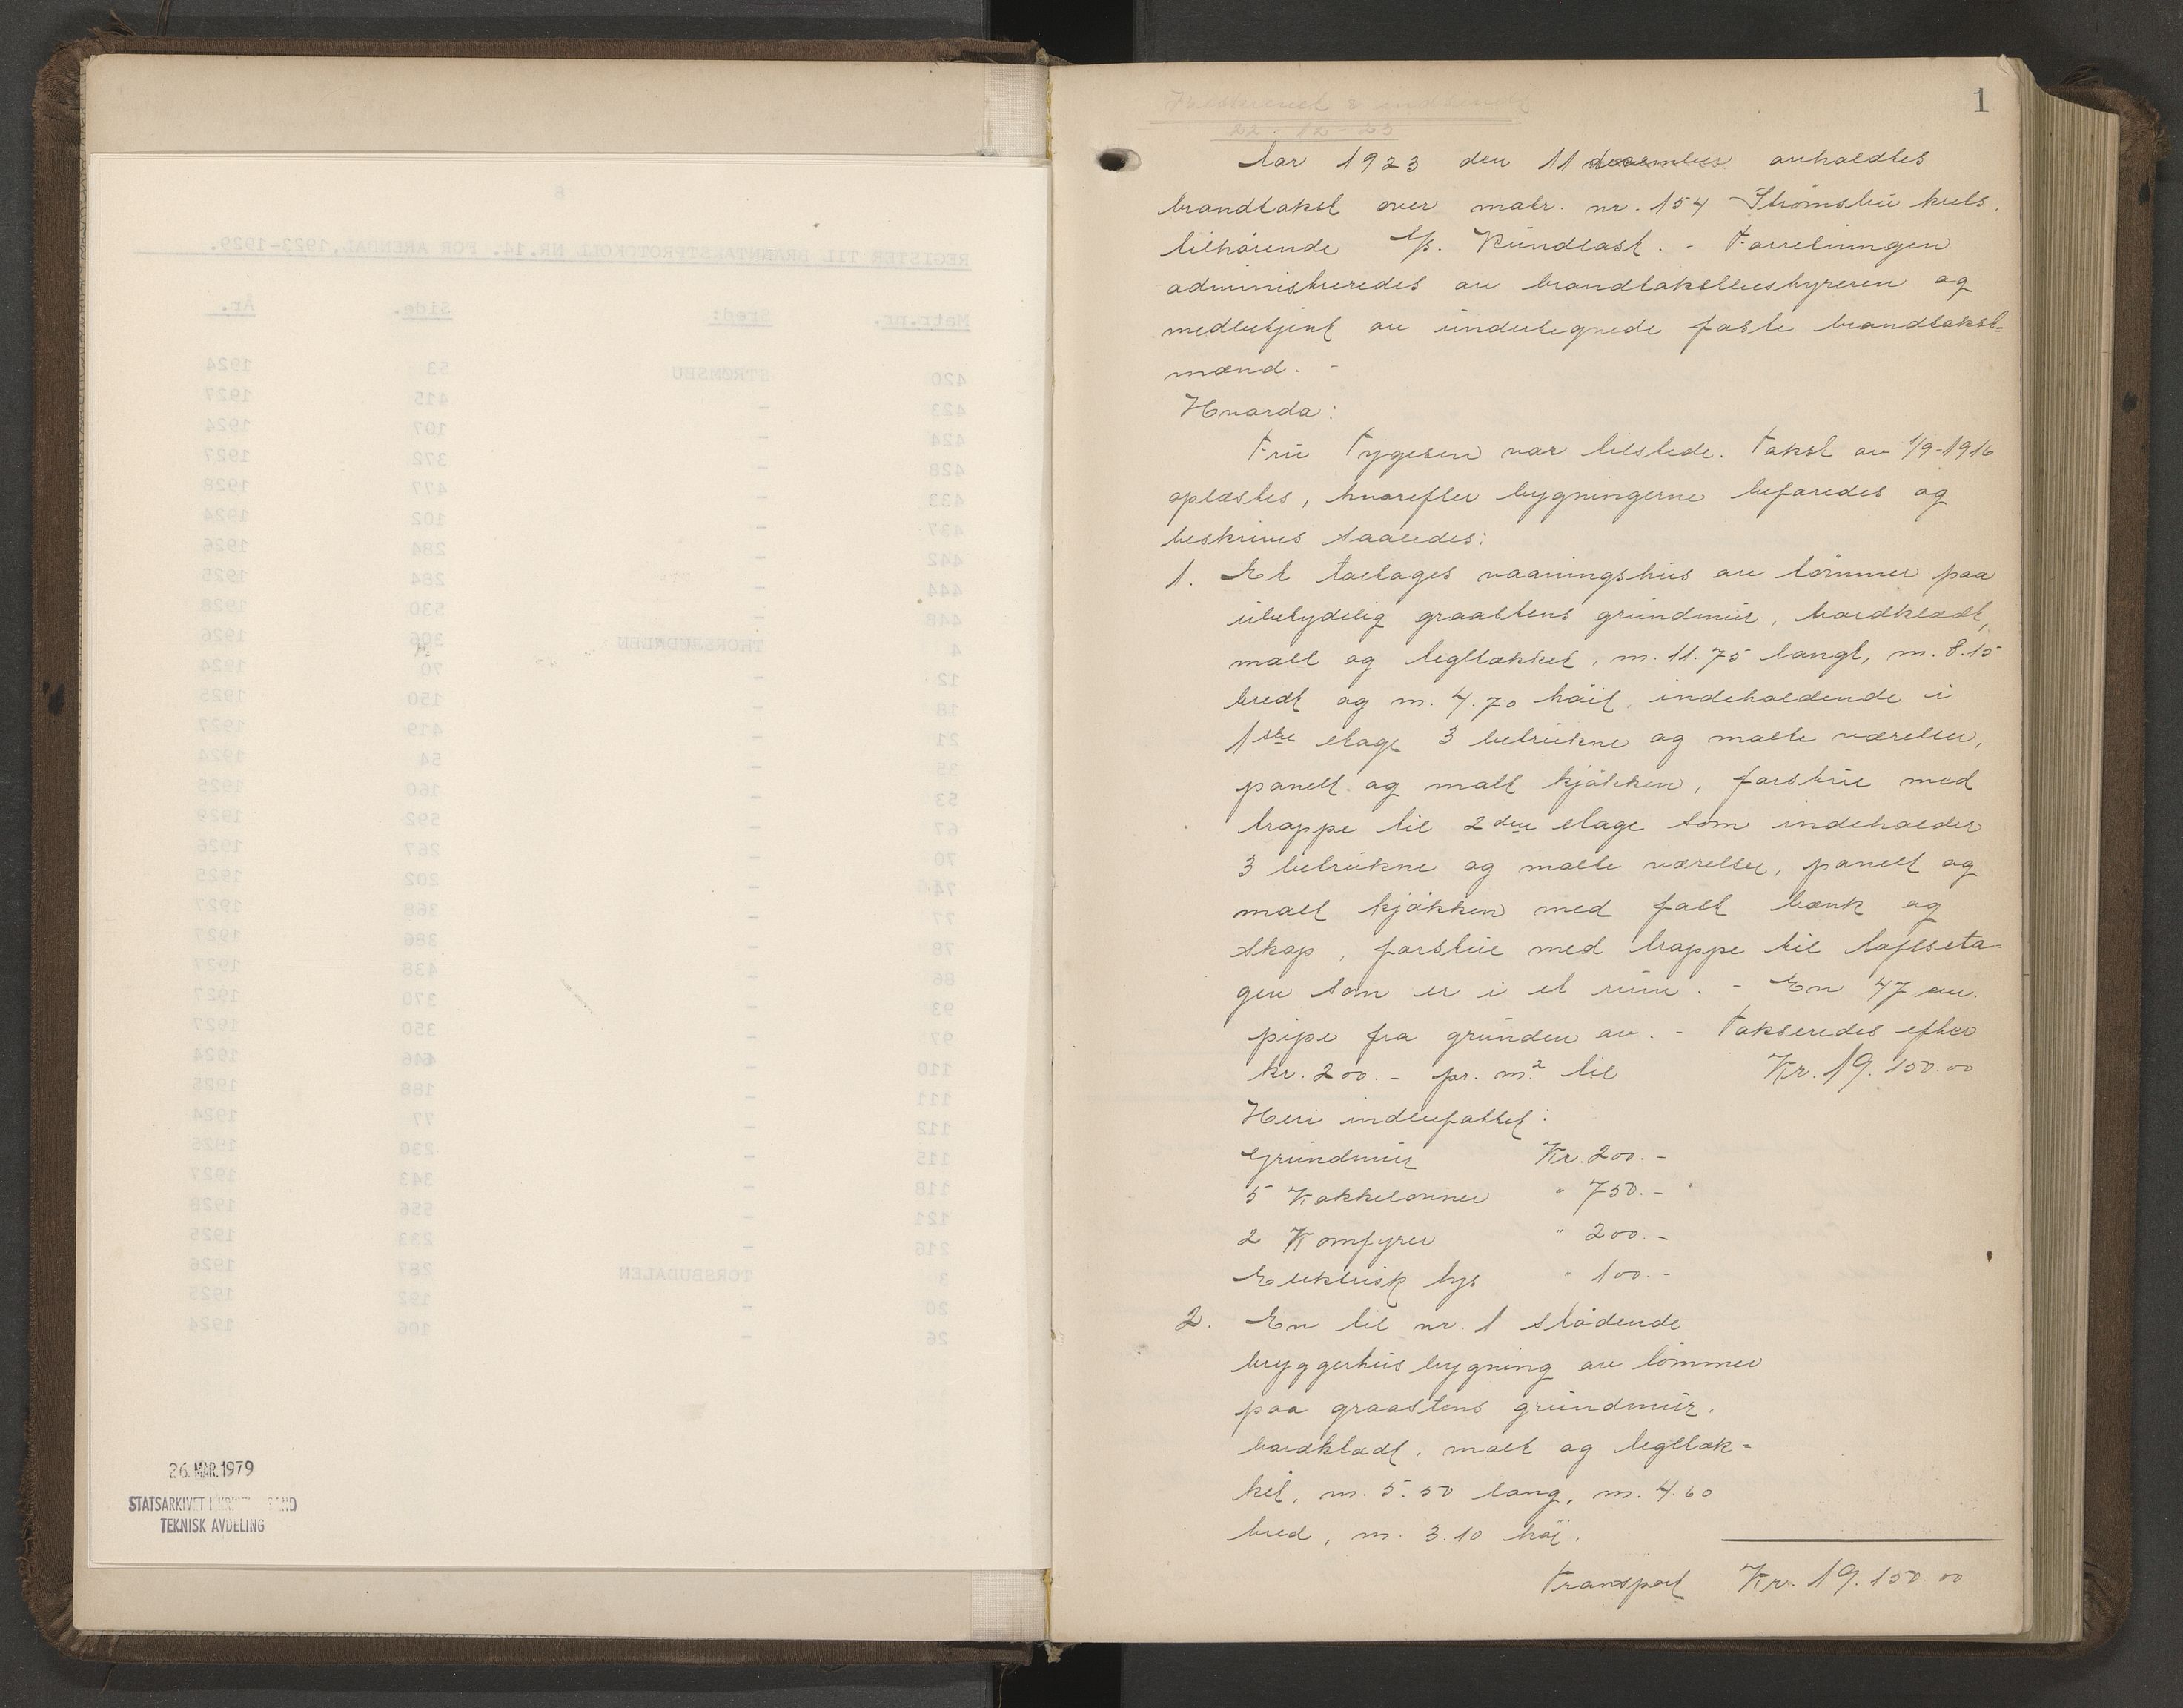 26. MAR. 1979
STATSARKIVET I
TEKNISK AVDELING
8
REGISTER TIL BRANNTAKSTPROTOKOLL NR.14. FOR ARENDAL,1923-1929.
Matr.nr. Sted: Side. År.
420 STRØMSBU 53 1924
423 - 415 1927
424 - 107 1924
428 - 372 1927
433 - 477 1928
437 - 102 1924
442 - 284 1926
444 - 284 1925
448 - 530 1928
4 THORSBUDALEN 306 1926
12 - 70 1924
18 - 150 1925
21 - 419 1927
35 - 54 1924
53 - 160 1925
67 - 592 1929
70 - 267 1926
74 - 202 1925
77 - 368 1927
78 - 386 1927
86 - 438 1927
93 - 370 1927
97 - 350 1927
110 - 646 1924
111 - 188 1925
112 - 77 1924
115 - 230 1925
118 - 343 1927
121 - 556 1928
216 - 233 1925
3 TORSBUDALEN 287 1926
20 - 192 1925
26 - 106 1924
1
22-12-23
Aar 1923 den 11 desember avholdtes
brandtakst over matr. nr. 154 Strømsbu kreds.
tilhørende Rundtast. - Forretningen
administreredes av brandtakstbestyreren og
medbetjent av undertegnede faste brandtakst=
mænd. -
Hvorda:
Fru Tygesen var tilstede. Takst av 1/9-1916
oplæstes, hvorefter bygningerne befaredes og
beskrives saaledes:
1. Et toetages vaaningshus av tømmer paa
ubetydelig graastens grundmur, bordklædt,
malt og tegltækket, m. 11.75 langt, m. 8.15
bredt og m. 4.70 høit, indeholdende i
1ste etage 3 betrukne og malte værelser,
panelt og malt kjøkken, forstue med
trappe til 2den etage som indeholder
3 betrukne og malte værelser, panelt og
malt kjøkken med fast bænk og
skap, forstue med trappe til loftseta-
gen som er i et rum. - En 47 cm.
pipe fra grunden av. - Takseredes efter
kr. 200.- pr. m.2 til Kr. 19.150.00
Heri indbefattet:
Grundmur Kr. 200.-
5 Kakkelovner " 750.-
2 Komfyrer " 200.-
Elektrisk lys " 100.-
2. En til nr. 1 stødende
bryggerhusbygning av tømmer
paa graastens grundmur,
bordklædt, malt og tegltæk=
ket, m. 5.50 lang, m. 4.60
bred, m. 3.10 høi.
Transport Kr. 19.150.00